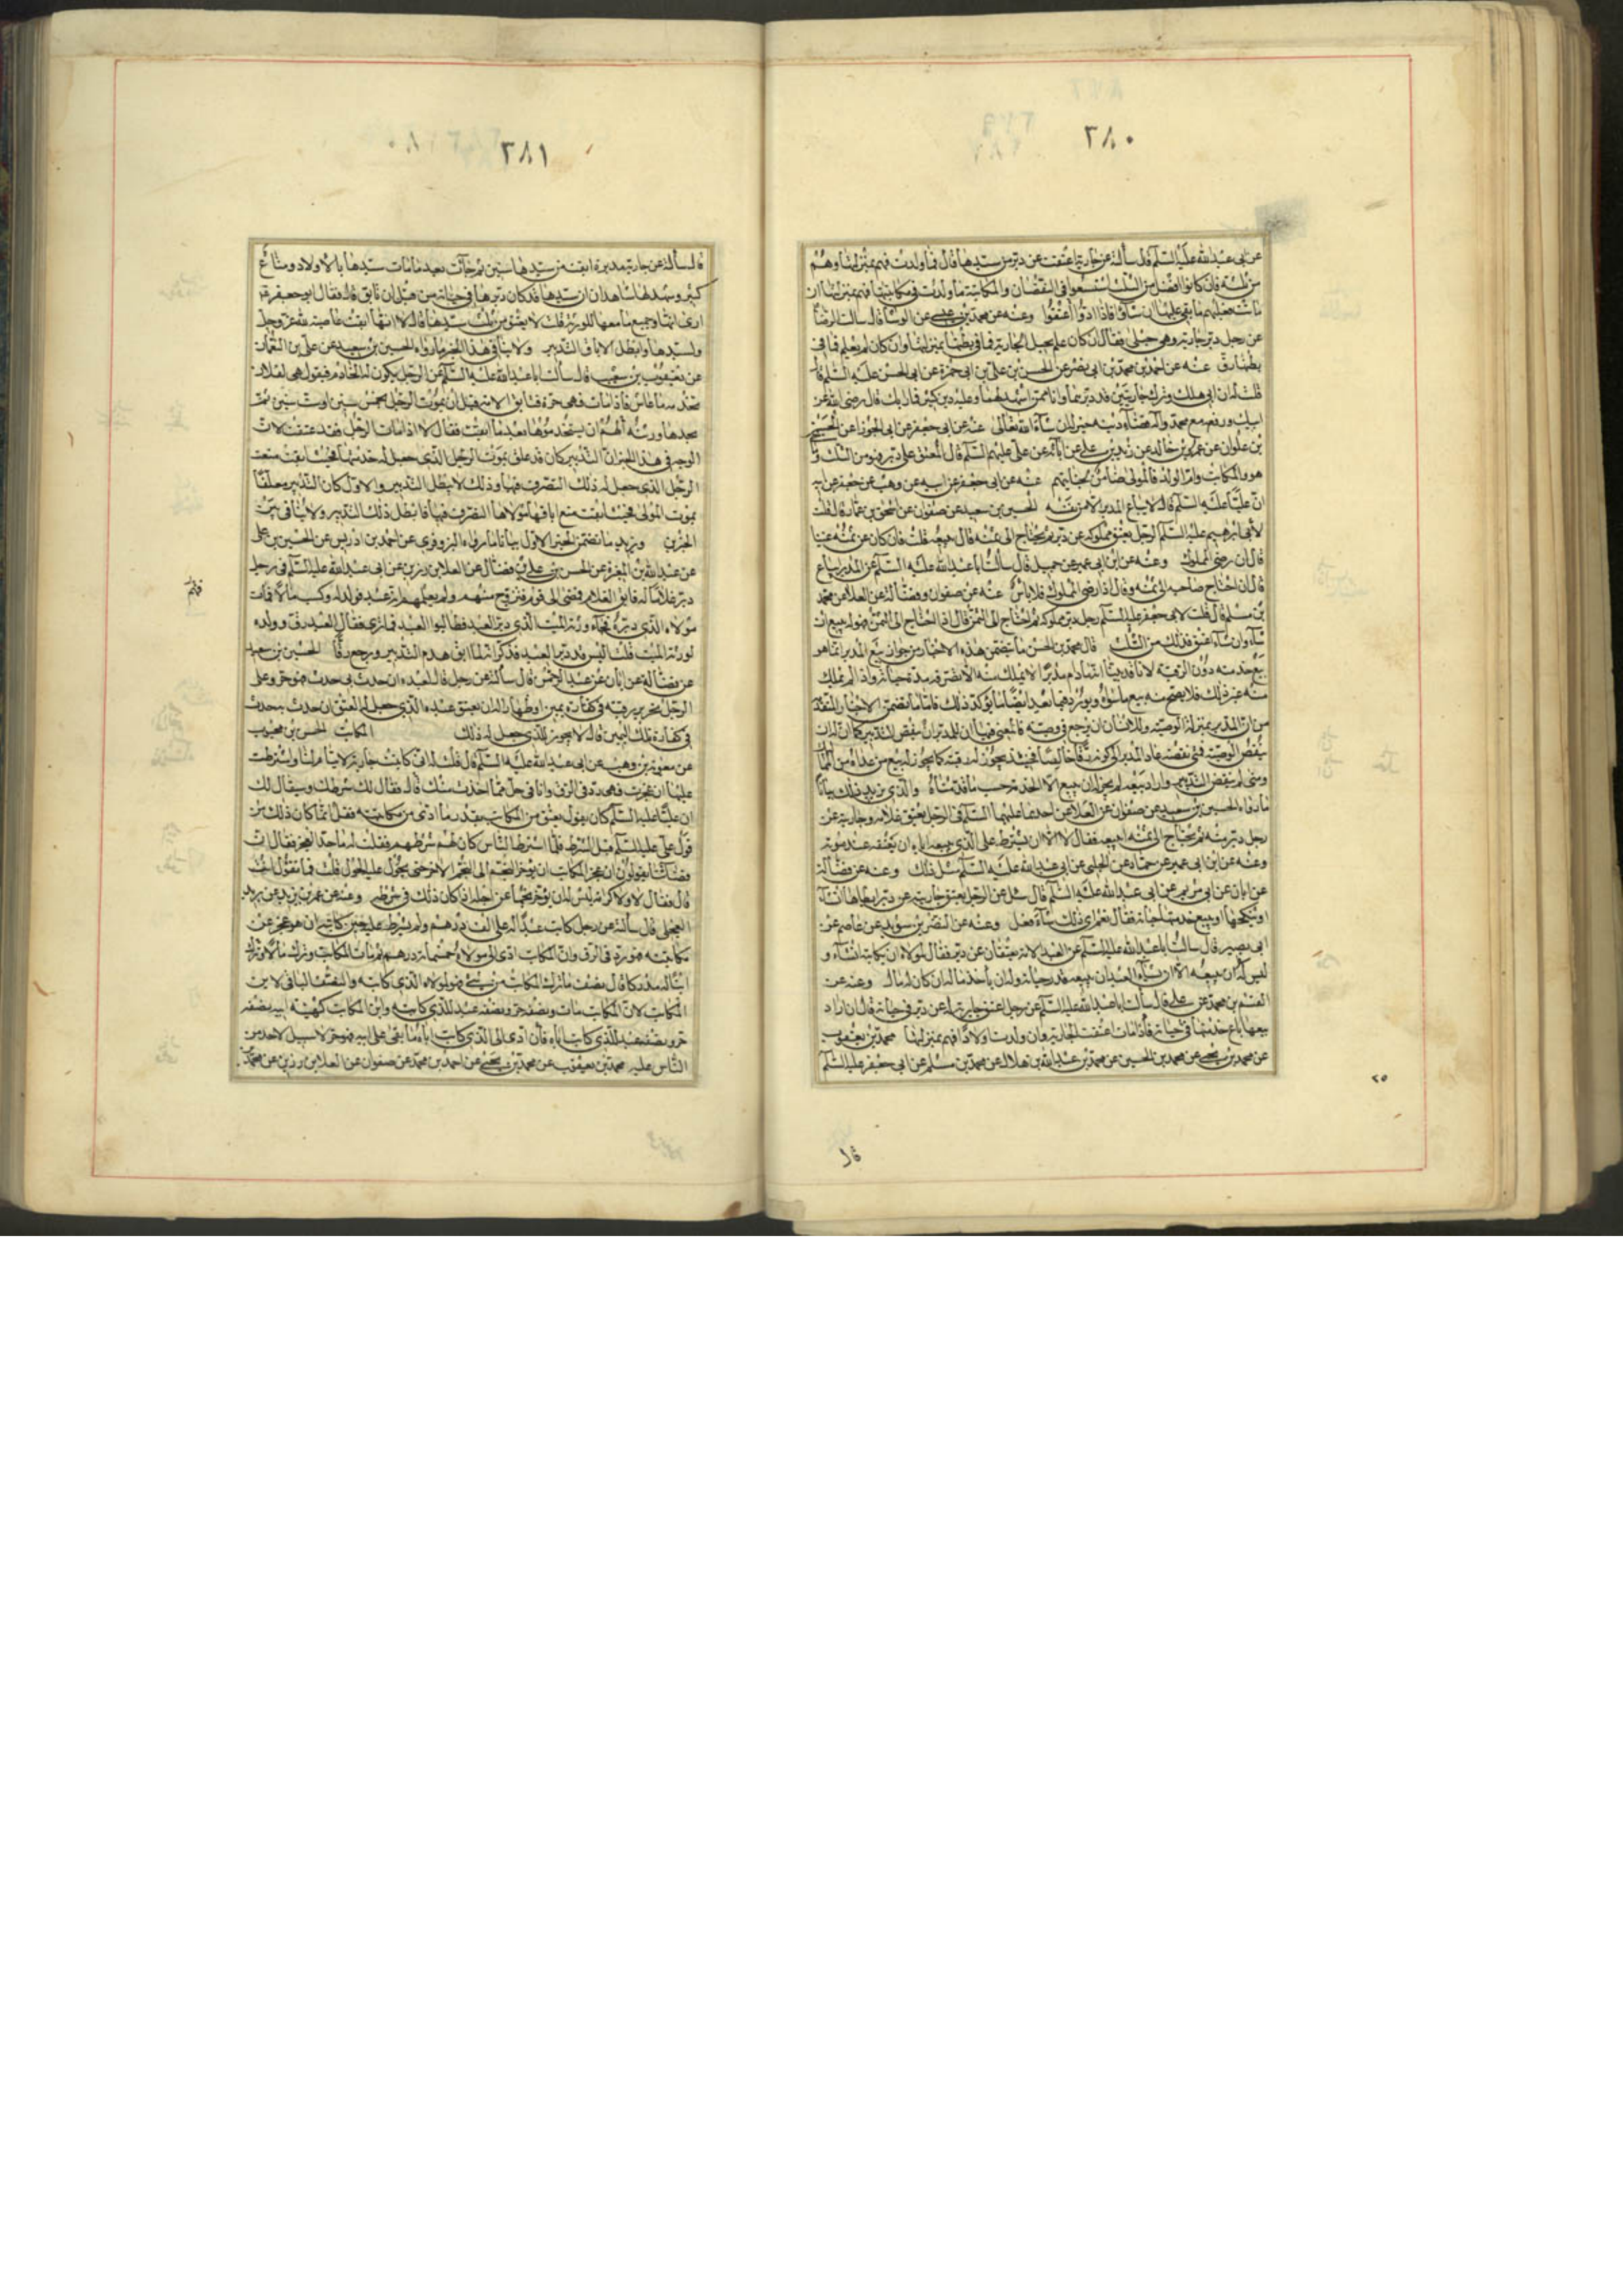 ٢٨٠
عن ابى عبدالله عليه السلم قال سألته عن جارية اعتقت عن دبر من سيدها قال فما ولدت فهم بمنزلتها وهم
من ثلثه فان كانوا افضل من الثلث استسعوا فى النقصان والمكاتبة ما ولدت فى مكاتبتها فهم بمنزلتها ان
ماتت فعليهم ما بقى عليها ان شاؤا فاذا ادوا اعتقوا وعنه عن محمد بن عن الوشا قال سالت الرضا
عن رجل دبر جارية وهى حبلى فقال ان كان علم بحبل الجارية فما فى بطنها بمنزلتها وان كان لم يعلم فما فى
بطنها رق عنه عن احمد بن محمد بن ابى نصر عن الحسن بن على بن ابى حمزة عن ابى الحسن عليه السلم قال
قلت له ان ابى هلك وترك جاريتين قد دبرهما وانا ممن اشهد لهما وعليه دين كثير فما رايك قال رضى الله عن
ابيك ورفعه مع محمد وآله قضاء دينه خير له ان شآء الله تعالى عنه عن ابى جعفر عن ابى الجوزا عن الحسين
بن علوان عن عمرو بن خالد عن زيد بن على عن آبائه عن على عليهم السلم قال المعتق على دبر فهو من الثلث وما
هو والمكاتب وام الولد فالمولى ضامن لجنايتهم عنه عن ابى جعفر عن ابيه عن وهب عن جعفر عن ابيه
ان عليا عليه السلم قال لا يباع المدبر الا من نفسه الحسين بن سعيد عن صفوان عن اسحق بن عمار قال قلت
لأبى ابرهيم عليه السلم الرجل يعتق مملوكه عن دبر ثم يحتاج الى ثمنه قال يبيعه قلت فان كان عن ثمنه غنيا
قال ان رضى المملوك وعنه عن ابن ابى عمير عن جميل قال سألت ابا عبدالله عليه السلم عن المدبر ايباع
قال ان احتاج صاحبه الى ثمنه وقال اذا رضى المملوك فلا باس عنه عن صفوان وفضالة عن العلا عن محمد
بن مسلم قال قلت لابى جعفر عليه السلم رجل دبر مملوكه ثم احتاج الى الثمن قال اذا احتاج الى الثمن فهو له يبيع ان
شآء وان شآء اعتق فذلك من الثلث قال محمد بن الحسن ما يتضمن هذه الاخبار من جواز بيع المدبر انما هو
بيع خدمته دون الرقبة لانا قد بينا انه ما دام مدبرا لا يملك منه الا تصرفه مدة حياته واذا لم يملك
منه غير ذلك فلا يصح منه بيع ما سواه ونورد فيما بعد ايضا ما يؤكد ذلك فاما ما تضمن الاخبار المتقدمة
من ان المدبر بمنزلة الوصية وللانسان ان يرجع فى وصيته فالمعنى فيها ان للمدبر ان ينقض التدبير كما ان له ان
ينقض الوصية فمتى نقضه عاد المدبر الى كونه رقا خالصا فحينئذ يجوز له بيعه كما يجوز له بيع من عداه من المماليك
ومتى لم ينقض التدبير واراد بيعه لم يجز له ان يبيع الا الخدمة حسب ما قدمناه والذى يزيد ذلك بيانا
ما رواه الحسين بن سعيد عن صفوان عن العلا عن احدهما عليهما السلم فى الرجل يعتق غلامه وجاريته عن
رجل دبر منه ثم يحتاج الى ثمنه ايبيعه فقال لا الا ان يشترط على الذى يبيعه اياه ان يعتقه عند موته
وعنه عن ابن ابى عمير عن حماد عن الحلبى عن ابى عبدالله عليه السلم مثل ذلك وعنه عن فضالة
عن ابان عن ابى مريم عن ابى عبدالله عليه السلم قال سئل عن الرجل يعتق جاريته عن دبر ايطأها ان شآء
او ينكحها او يبيع خدمتها حياته فقال نعم اى ذلك شآء فعل وعنه عن النضر بن سويد عن عاصم عن
ابى بصير قال سالت ابا عبدالله عليه السلم عن العبد والامة يعتقان عن دبر فقال لمولاه ان يكاتبه ان شآء و
ليس له ان يبيعه الا ان يشآء العبد ان يبيعه قدر حياته وله ان يأخذ ماله ان كان له مال وعنه عن
القسم بن محمد عن على قال سألت ابا عبدالله عليه السلم عن رجل اعتق جارية له عن دبر فى حياته قال ان اراد
بيعها باع خدمتها فى حياته فاذا مات اعتقت الجارية وان ولدت اولادا فهم بمنزلتها محمد بن يعقوب
عن محمد بن يحيى عن محمد بن الحسين عن محمد بن عبدالله بن هلال عن محمد بن مسلم عن ابى جعفر عليه السلم
٢٥
قال
٢٨١
قال سألته عن جارية مدبرة ابقت من سيدها سنين ثم جآءت بعد ما مات سيدها باولاد ومتاع
كثير وشهد لها شاهدان ان سيدها قد كان دبرها فى حياته من قبل ان تابق قال فقال ابو جعفر
ارى انها وجميع ما معها للورثة قلت لا تعتق من ثلث سيدها قال لا انها ابقت عاصية لله عز وجل
ولسيدها وابطل الاباق التدبير ولا ينافى هذا الخبر ما رواه الحسين بن سعيد عن على بن النعمان
عن يعقوب بن شعيب قال سألت ابا عبدالله عليه السلم عن الرجل يكون له الخادم فيقول هى لفلان
تخدمه ما عاش فاذا مات فهى حرة فتابق الامة قبل ان يموت الرجل بخمس سنين او ست سنين ثم
يجدها ورثته الهم ان يستخدموها بعد ما ابقت فقال لا اذا مات الرجل فقد عتقت لان
الوجه فى هذا الخبر ان التدبير كان قد علق بموت الرجل الذى جعل له خدمتها فحيث ابقت منعت
الرجل الذى جعل له ذلك التصرف فيها وذلك لا يبطل التدبير والاول كان التدبير معلقا
بموت المولى فحيث ابقت منع اباقها مولاها التصرف فيها فابطل ذلك التدبير ولا تنافى بين
الخبرين ويزيد ما تضمن الخبر الاول بيانا ما رواه البزوفرى عن احمد بن ادريس عن الحسين بن على
عن عبدالله بن المغيرة عن الحسن بن على بن فضال عن العلا بن رزين عن ابى عبدالله عليه السلم فى رجل
دبر غلاما له فابق الغلام فمضى الى قوم فتزوج منهم ولم يعلمهم انه عبد فولد له وكسب مالا فمات
مولاه الذى دبره فجآء ورثة الميت الذى دبر العبد فطالبوا العبد فما ترى فقال العبد رق وولده
لورثة الميت قلت اليس قد دبر العبد فذكر انه لما ابق هدم التدبير ورجع رقا الحسين بن سعيد
عن فضالة عن ابان عن عبد الرحمن قال سألته عن رجل قال لعبده ان حدث بى حدث فهو حر وعلى
الرجل تحرير رقبة فى كفارة يمين او ظهار اله ان يعتق عبده الذى جعل له العتق ان حدث به حدث
فى كفارة تلك اليمين قال لا يجوز للذى جعل له ذلك المكاتب الحسن بن محبوب
عن معوية بن وهب عن ابى عبدالله عليه السلم قال قلت له انى كاتبت جارية لايتام لنا واشترطت
عليها ان عجزت فهى رد فى الرق وانا فى حل مما اخذت منك قال فقال لك شرطك وسيقال لك
ان عليا عليه السلم كان يقول يعتق من المكاتب بقدر ما ادى من مكاتبته فقل انما كان ذلك من
قول على عليه السلم قبل الشرط فلما اشترط الناس كان لهم شرطهم فقلت له ما حد العجز فقال ان
قضاتنا يقولون ان عجز المكاتب ان يؤخر النجم الى النجم الاخر حتى يحول عليه الحول قلت فما تقول انت
قال فقال لا ولا كرامة ليس له ان يؤخر نجما عن اجله اذا كان ذلك فى شرطه وعنه عن عمر بن يزيد عن بريد
العجلى قال سألته عن رجل كاتب عبدا له على الف درهم ولم يشترط عليه حين كاتبه ان هو عجز عن
مكاتبته فهو رد فى الرق وان المكاتب ادى الى مولاه خمسمائة درهم ثم مات المكاتب وترك مالا وترك
ابنا له مدركا قال نصف ما ترك المكاتب من شىء فهو لمولاه الذى كاتبه والنصف الباقى لابن
المكاتب لان المكاتب مات ونصفه حر ونصفه عبد للذى كاتبه وابن المكاتب كهيئة ابيه نصفه
حر ونصفه عبد للذى كاتب اباه فان ادى الى الذى كاتب اباه ما بقى على ابيه فهو حر لا سبيل لاحد من
الناس عليه محمد بن يعقوب عن محمد بن يحيى عن احمد بن محمد عن صفوان عن العلا بن رزين عن محمد